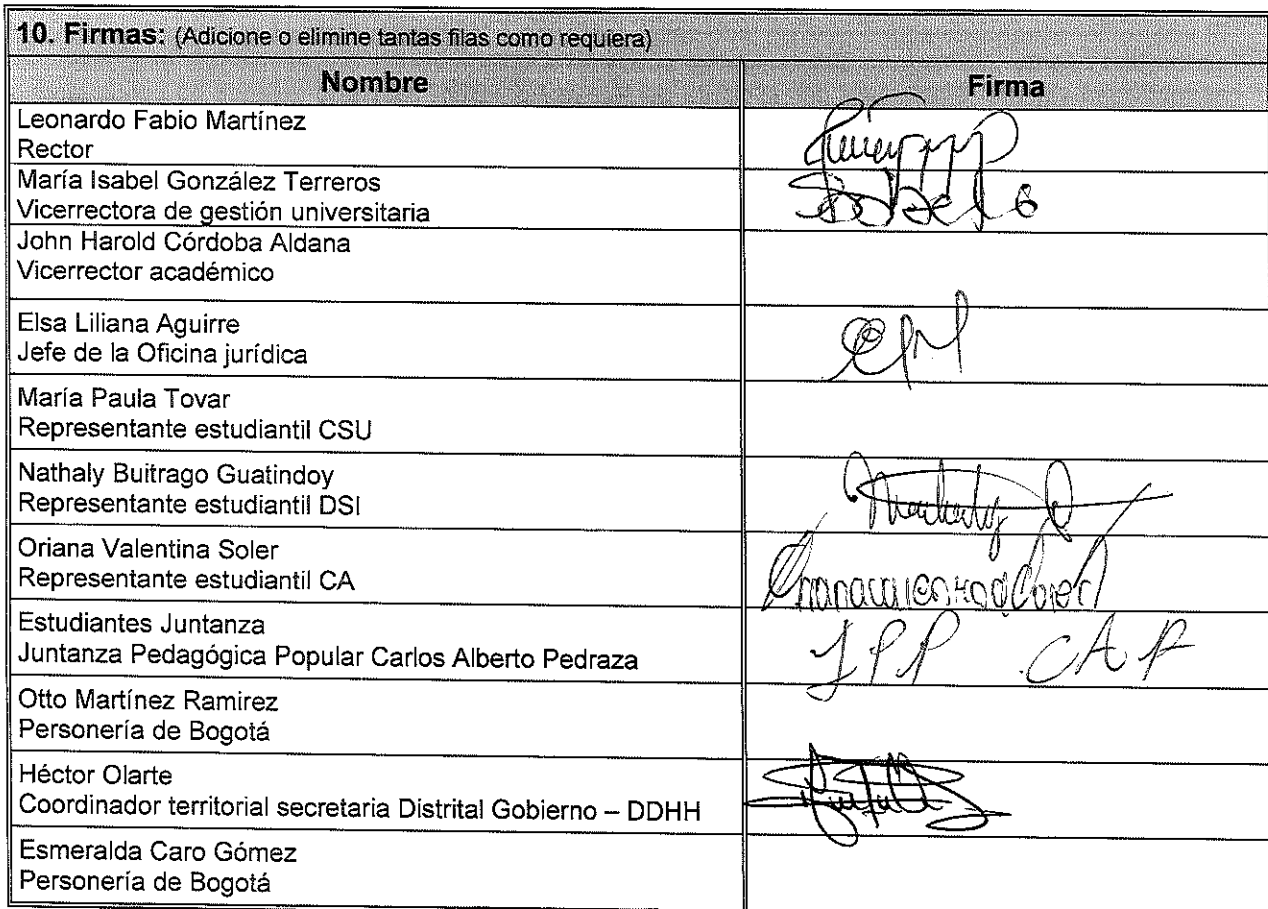 10. Firmas: (Adicione o elimine tantas filas como requiera)
Nombre Firma
Leonardo Fabio Martínez
Rector
María Isabel González Terreros
Vicerrectora de gestión universitaria
John Harold Córdoba Aldana
Vicerrector académico
Elsa Liliana Aguirre
Jefe de la Oficina jurídica
María Paula Tovar
Representante estudiantil CSU
Nathaly Buitrago Guatindoy
Representante estudiantil DSI
Oriana Valentina Soler
Representante estudiantil CA
Estudiantes Juntanza
Juntanza Pedagógica Popular Carlos Alberto Pedraza
JPP CAP
Otto Martínez Ramirez
Personería de Bogotá
Héctor Olarte
Coordinador territorial secretaria Distrital Gobierno – DDHH
Esmeralda Caro Gómez
Personería de Bogotá